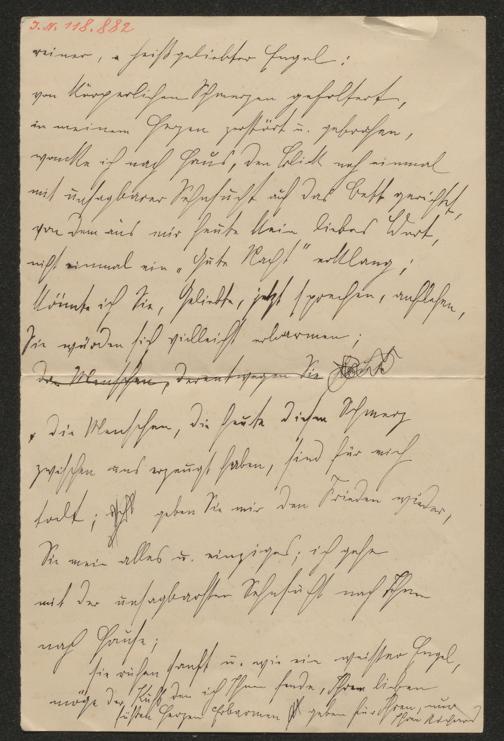 J.N. 118.882
reiner, heißgeliebter Engel:
von körperlichen Schmerzen gefoltert,
in meinem Herzen zerstört u. gebrochen,
wankte ich nach Haus, den Blick noch einmal
mit unsagbarer Sehnsucht auf das Bett gerichtet,
von dem aus mir heute kein liebes Wort,
nicht einmal ein „Gute Nacht" erklang;
könnte ich Sie, Geliebte, jetzt sprechen, anflehen,
Sie würden sich vielleicht erbarmen;
den Menschen, derentwegen Sie
die Menschen, die heute diesen Schmerz
zwischen uns erzeugt haben, sind für mich
todt; geben Sie mir den Frieden wieder,
Sie mein alles u. einziges; ich gehe
mit der unsagbarsten Sehnsucht nach Ihnen
nach Hause;
Sie ruhen sanft u. wie ein weisser Engel,
möge der Kuß, den ich Ihnen sende, Ihrem lieben
Herzen Erbarmen geben für Ihren, nur
Ihren Richard